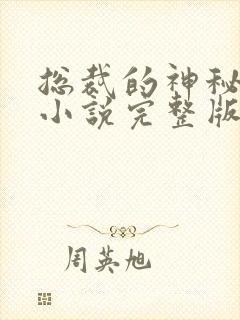 总裁的神秘
小说完整版
周英旭